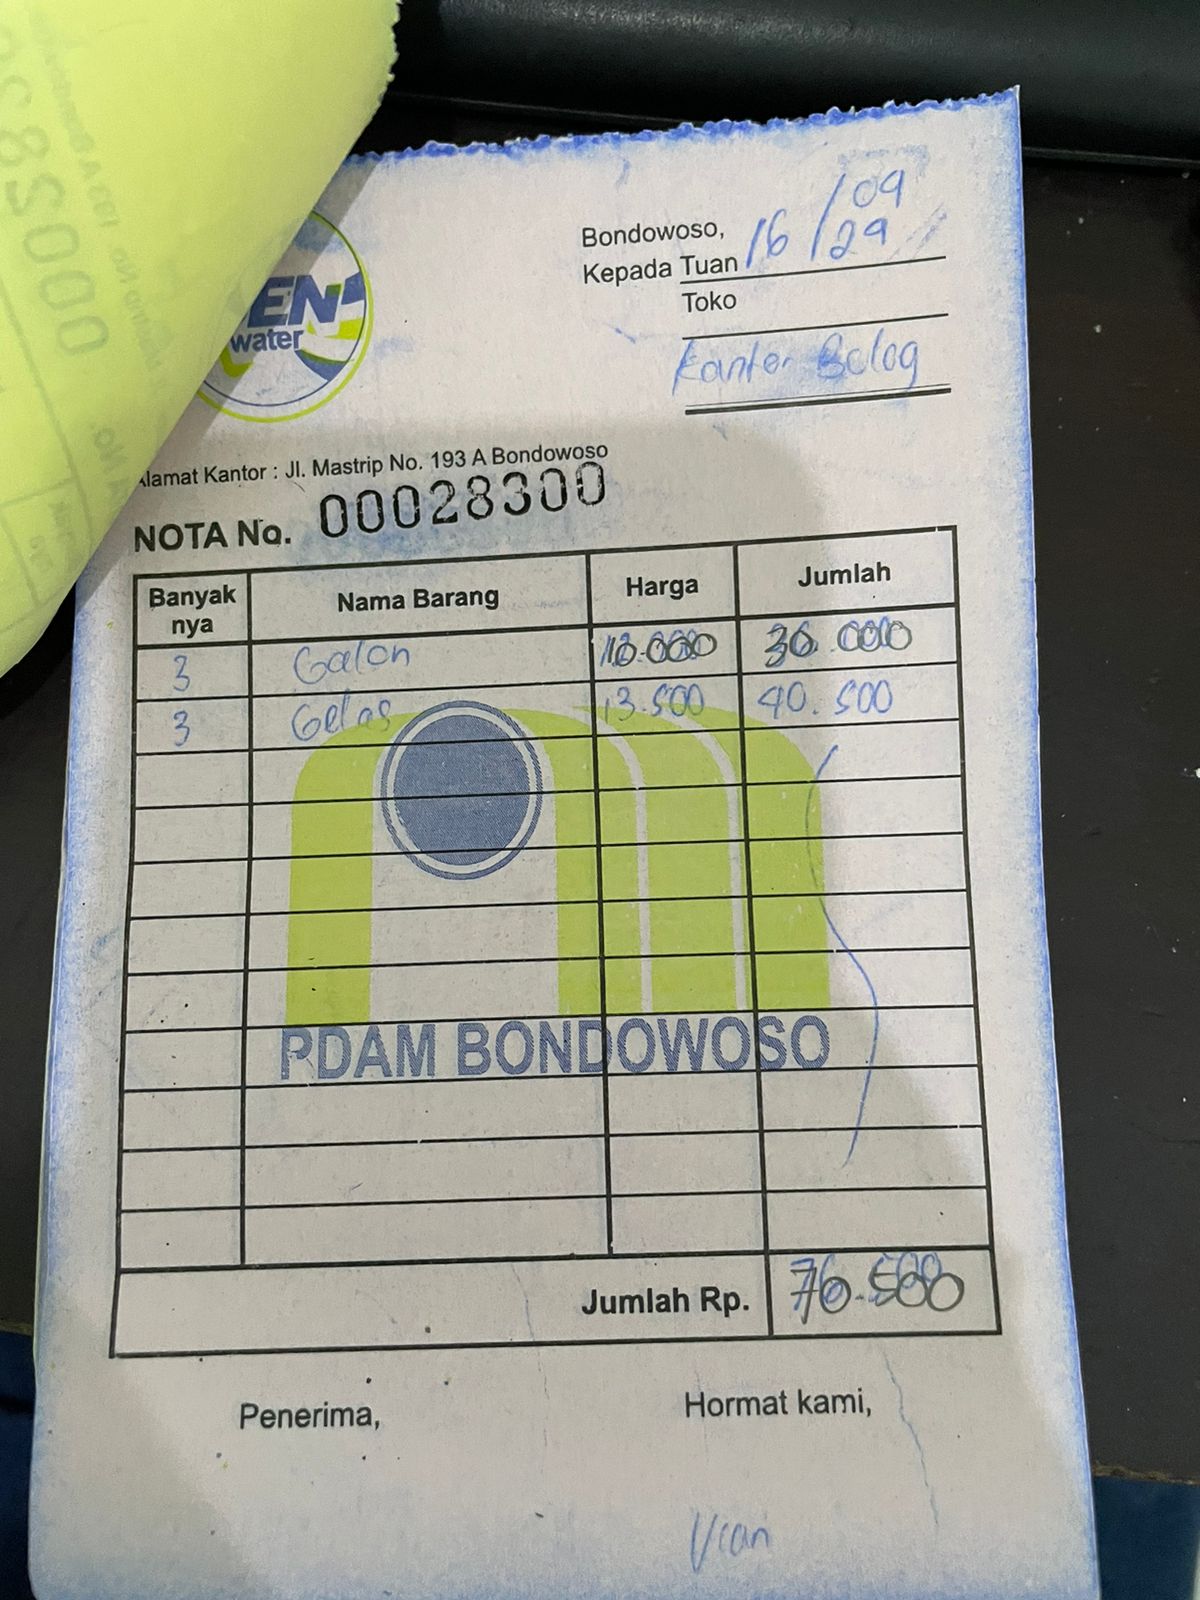 EN
water
Bondowoso, 16/09
29
Kepada Tuan
Toko
Kantor Bulog
Alamat Kantor : Jl. Mastrip No. 193 A Bondowoso
NOTA No. 00028300
Banyak nya Nama Barang Harga Jumlah
3 Galon 000 36.000
3 Gelas 13.500 40.500
PDAM BONDOWOSO
Jumlah Rp. 76.500
Penerima, Hormat kami,
Vian